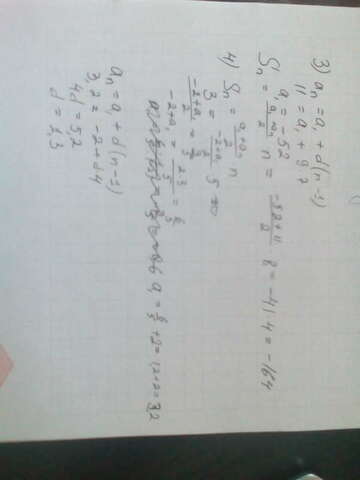 3) aₙ = a₁ + d(n-1)
11 = a₁ + 9·7
a₁ = -52
Sₙ = (a₁+aₙ)/2 n = (-52+11)/2 8 = -41·4 = -164
4) Sₙ = (a₁+aₙ)/2 n
3 = (-2+aₙ)/2 5
(-2+a₁)/2 = 3/5
-2+a₁ = 2·3/5 = 6/5
a₁ = 6/5 + 2 = 1,2+2 = 3,2
aₙ = a₁ + d(n-1)
3,2 = -2 + d4
4d = 5,2
d = 1,3